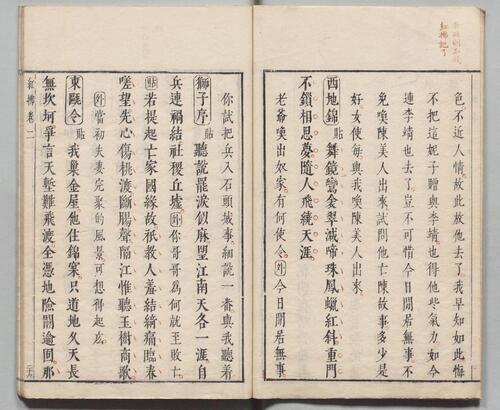 色不近人情故此放他去了我早知如此悔
不把這妮子贈與李靖也得他些氣力如今
連李靖也去了豈不可惜今日閒居無事不
免喚陳美人出來試問他亡陳故事多少是
好女使每與我喚陳美人出來
西地錦貼舞鏡鸞衾翠減啼珠鳳蠟紅斜重門
不鎖相思夢隨人飛繞天涯
老爺喚出奴家有何使令外今日閒居無事
你試把兵入石頭城事細說一番與我聽着
獅子序貼聽說罷淚似麻望江南天各一涯自
兵連禍結社稷丘墟外你哥哥為何就王敗亡
貼若提起亡家國緣故祇教人羞結綺痛臨春
嗟望先心傷桃渡斷腸聲隔江惟聽玉樹商歌
外當初夫妻完聚的風景可想得起麼
東甌令貼我巢金屋他住錦寨只道地久天長
無坎坷爭言天塹難飛渡全憑地險閣逾固那
紅拂卷二
紅拂記了